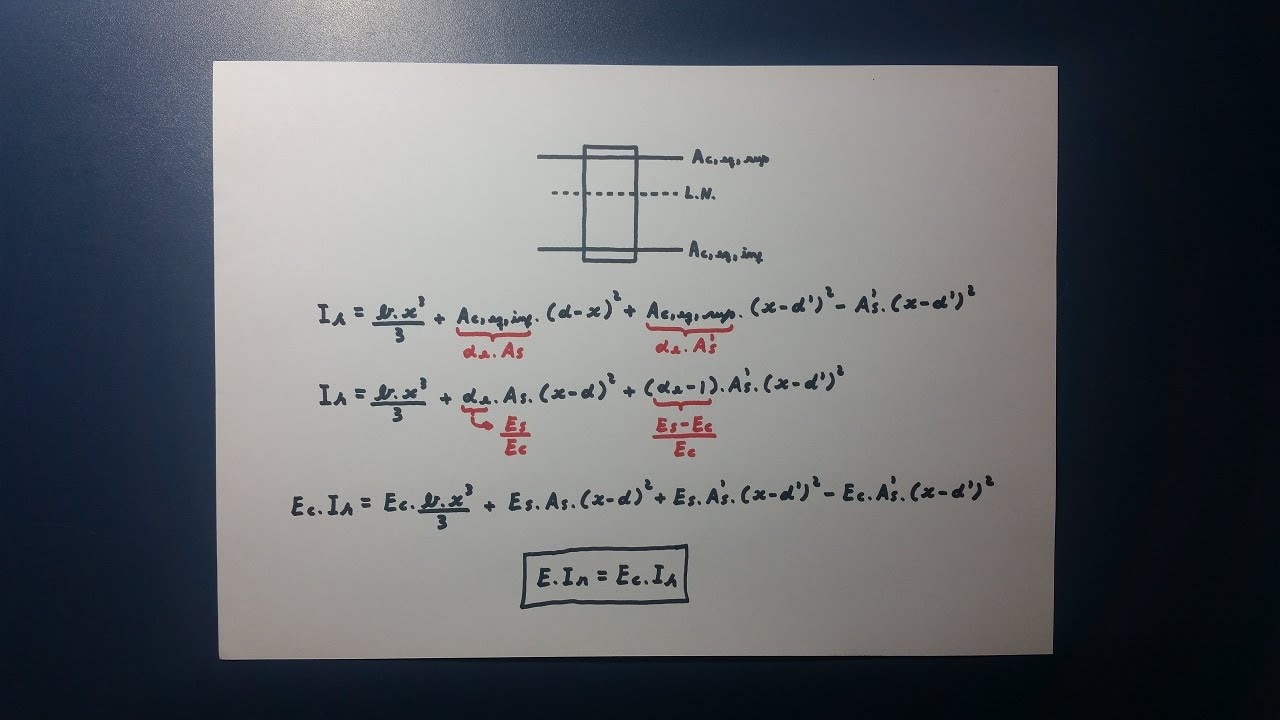 Ac,eq,sup
L.N.
Ac,eq,inf
I_h = b.x³/3 + Ac,eq,inf.(d-x)² + Ac,eq,sup.(x-d')² - A's.(x-d')²
αe.As αe.A's
I_h = b.x³/3 + αe.As.(x-d)² + (αe-1).A's.(x-d')²
Es/Ec Es-Ec/Ec
Ec.I_h = Ec.b.x³/3 + Es.As.(x-d)² + Es.A's.(x-d')² - Ec.A's.(x-d')²
E.Ir = Ec.I_h